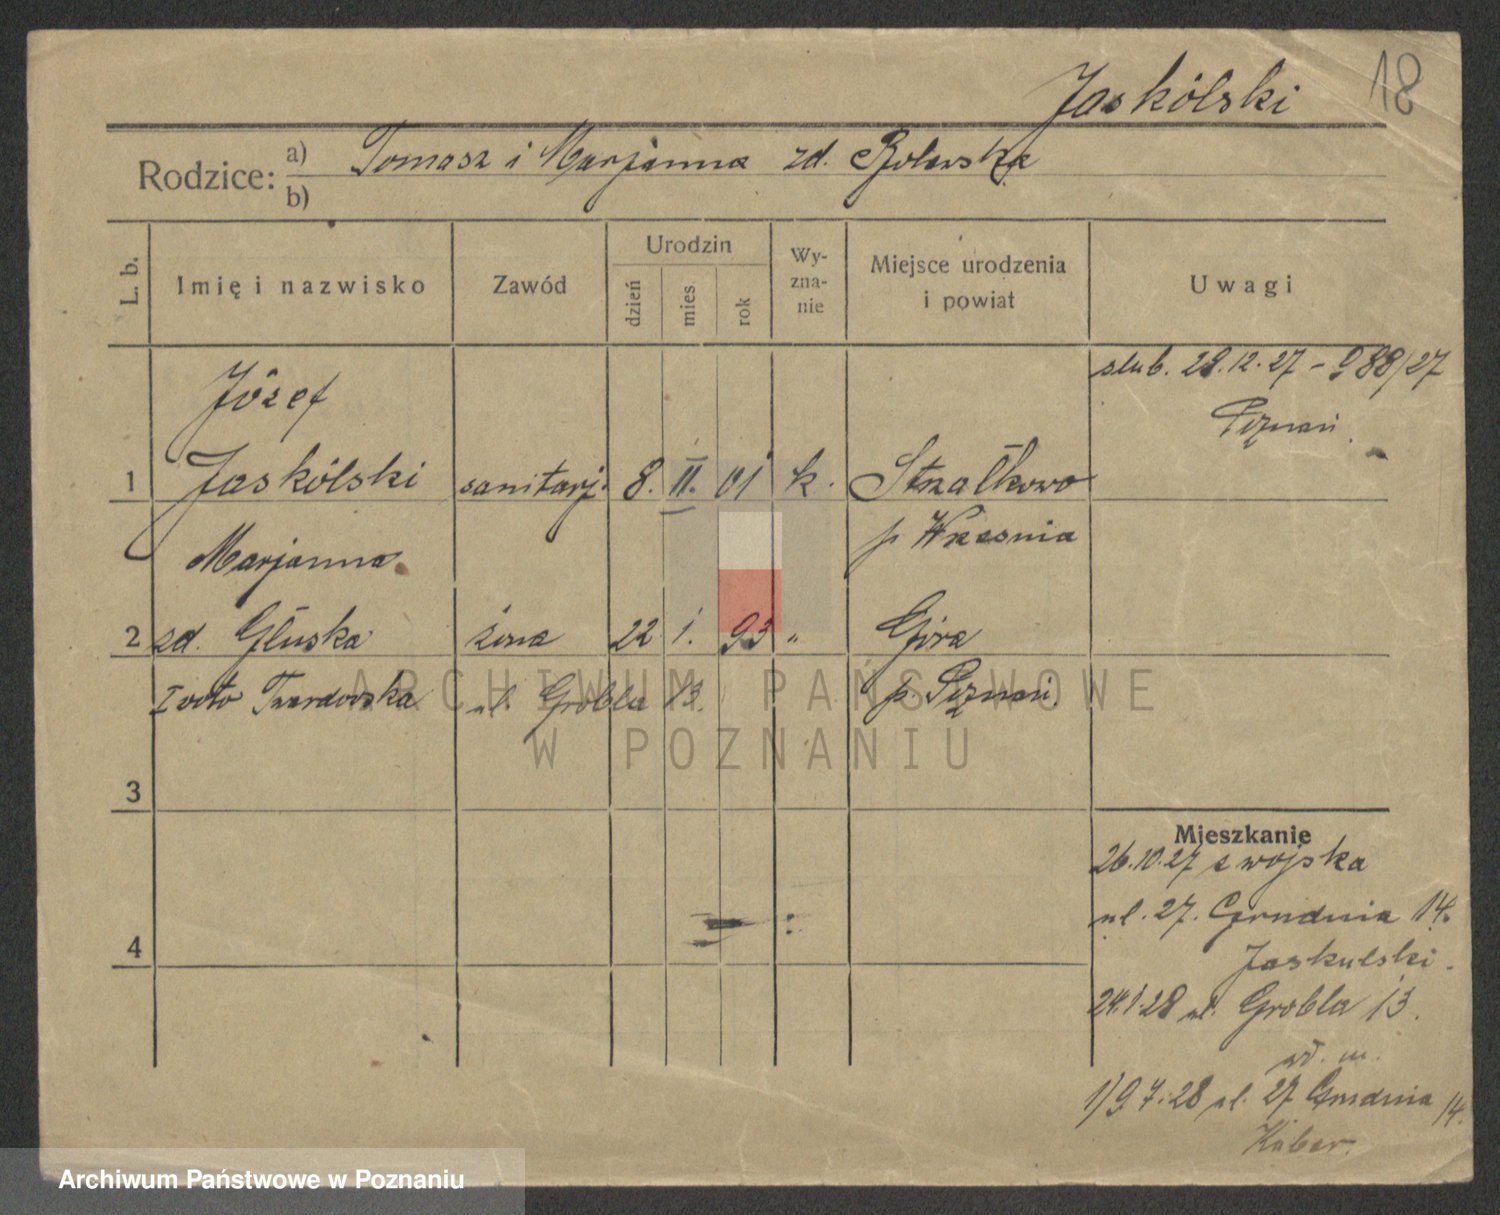 Jaskólski 18
Rodzice: a) Tomasz i Marjanna zd.
b)
L. b. Imię i nazwisko Zawód Urodzin dzień mies rok Wy-zna-nie Miejsce urodzenia i powiat Uwagi
ślub. 28.12.27 - 988/27
Poznań
Józef
1 Jaskólski sanitarj. 8. II. 01 k. Strzałkowo
p. Września
Marjanna
2 zd. Głuska żona 22 1. 93 " Góra
I voto Twardowska ul. Grobla 13. p. Poznań.
ARCHIWUM PAŃSTWOWE
W POZNANIU
3
Mieszkanie
26.10.27 z wojska
ul. 27. Grudnia 14.
4
Jaskulski.
24.1.28 ul. Grobla 13.
wł. m.
1) 9 7.28 ul. 27 Grudnia 14.
Archiwum Państwowe w Poznaniu